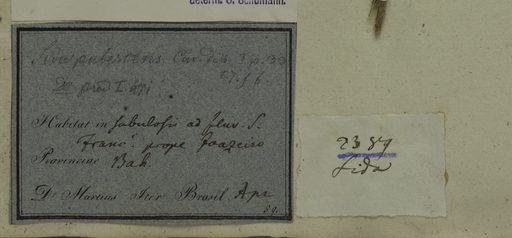 determ. C. Schumann.
pubescens. Cav. diss. I p. 30
Dec. prod I. 471
Habitat in sabulosis ad fluv. S.
Franc. prope Joazeiro
Provinciae Bah.
Dr. Martius Iter Brasil. Apr
2389
Sida